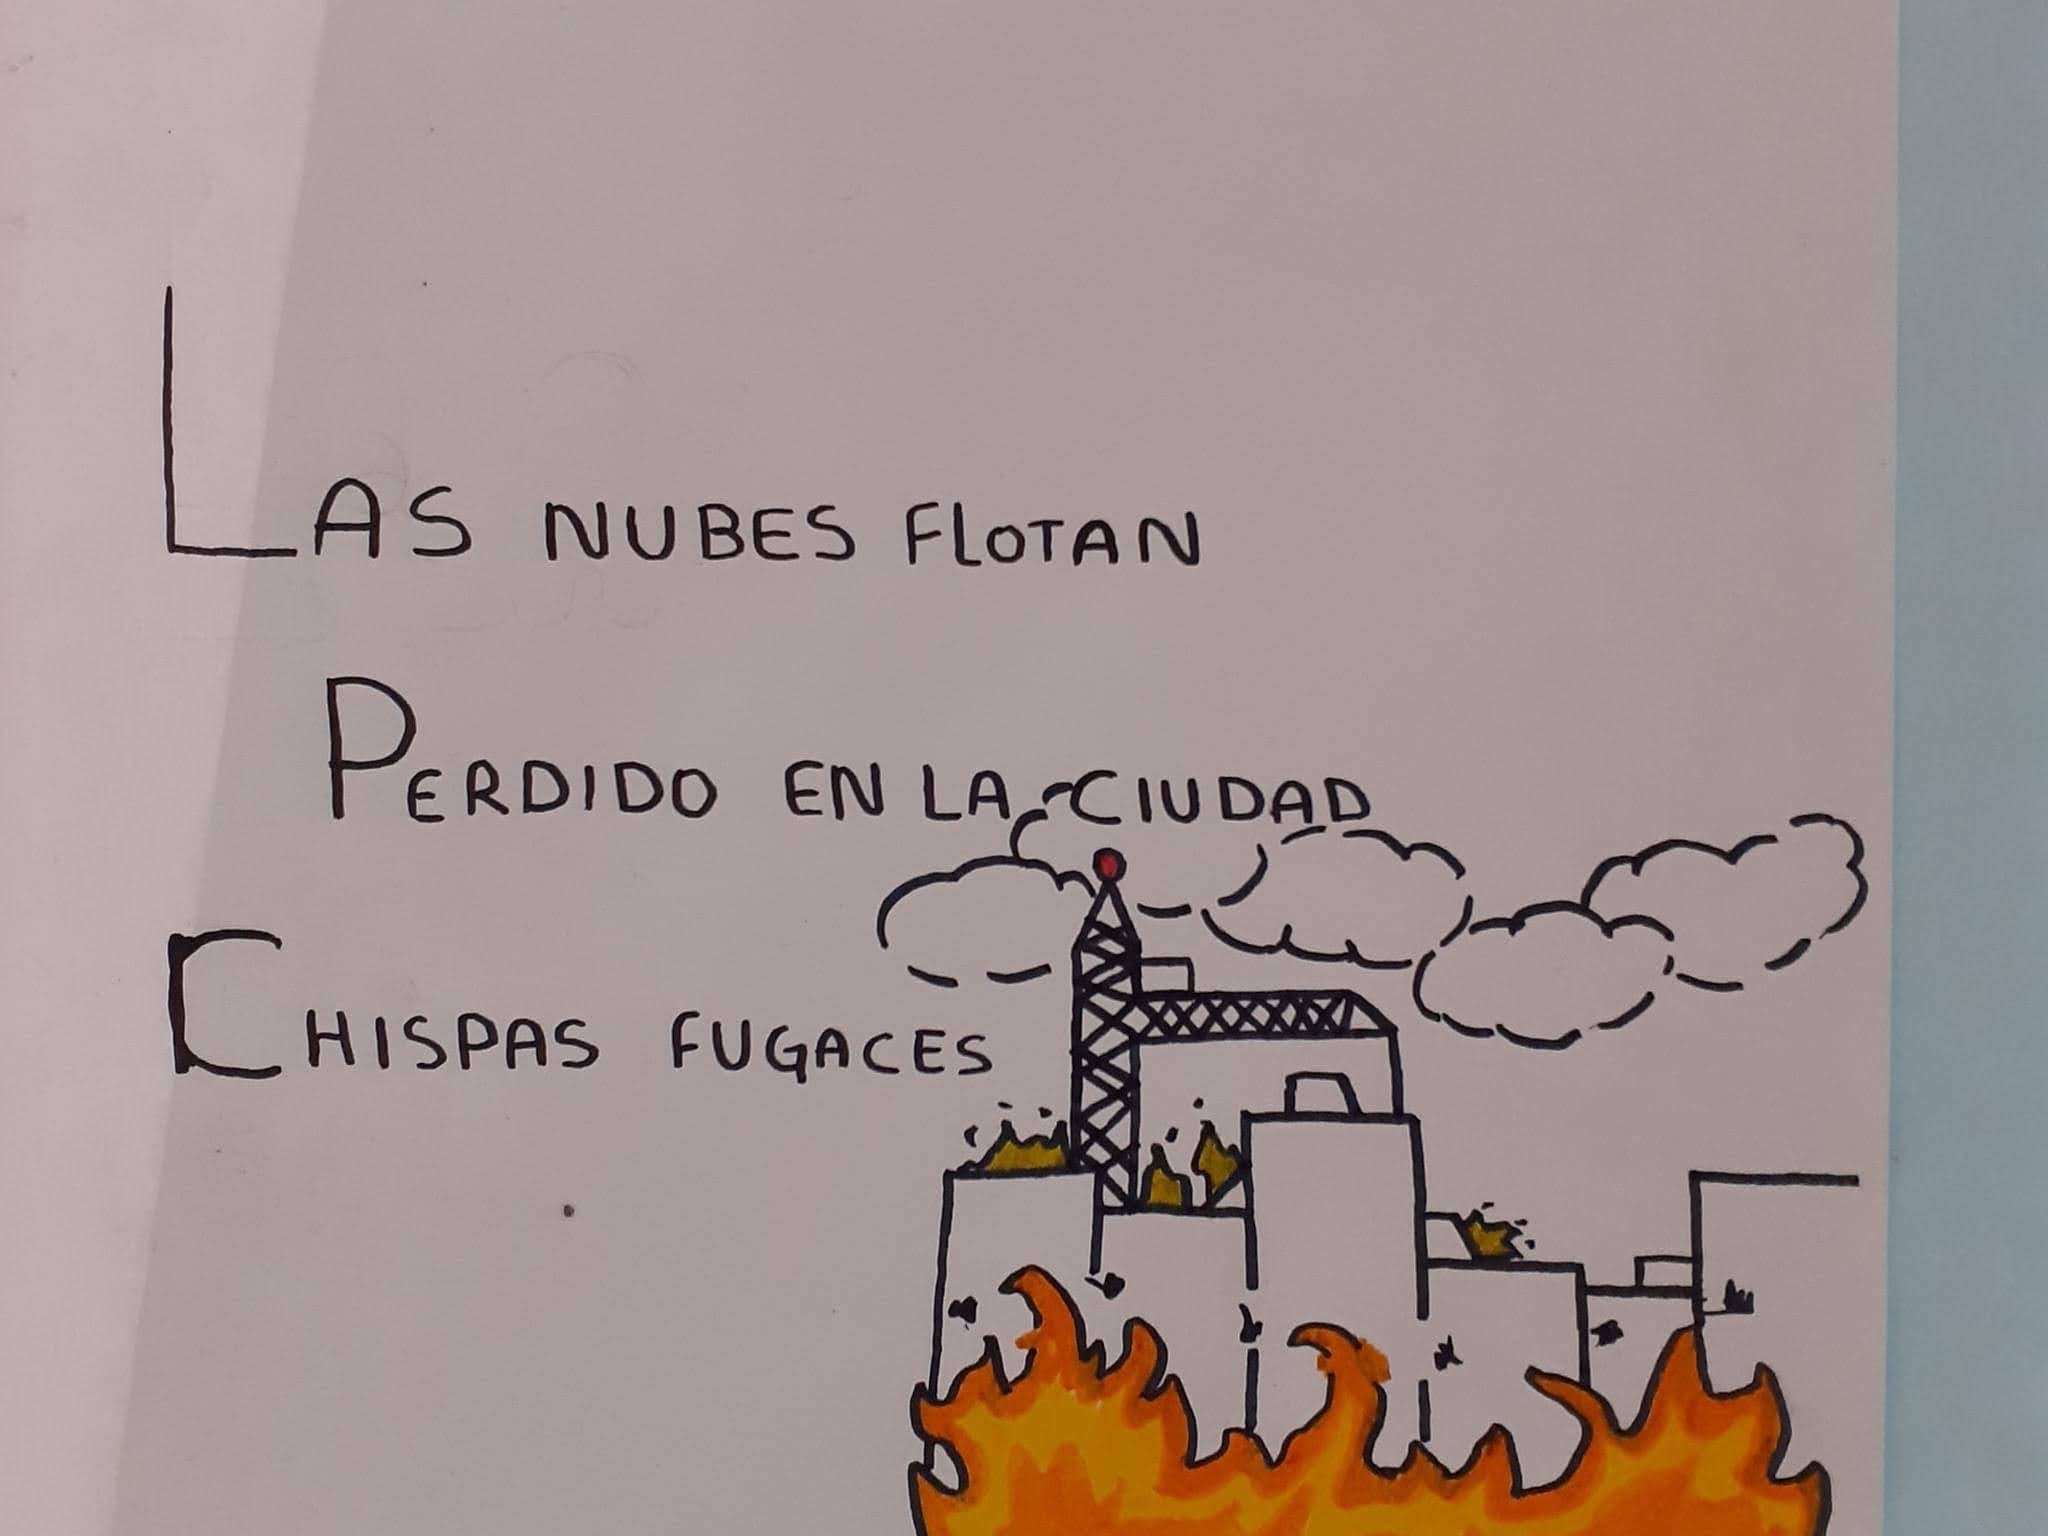 LAS NUBES FLOTAN
PERDIDO EN LA CIUDAD
CHISPAS FUGACES